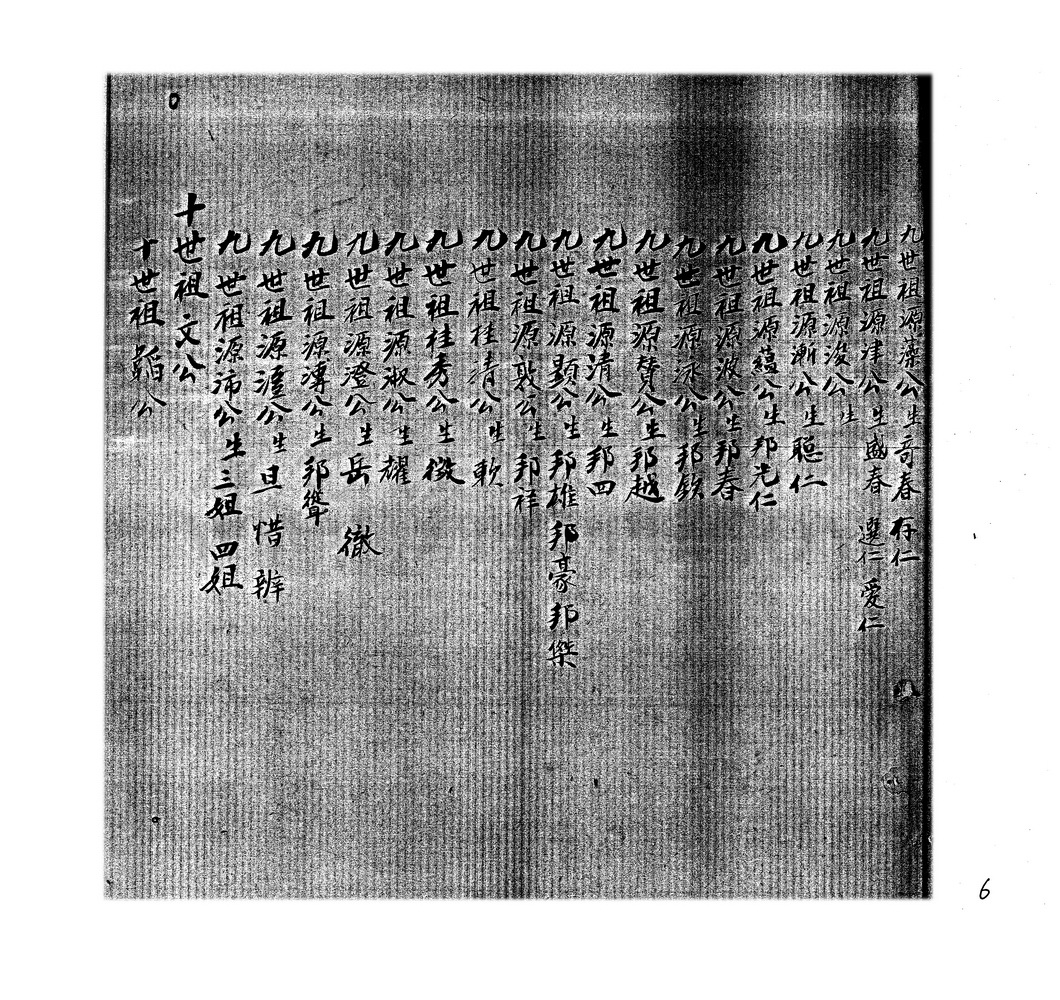 九世祖源藻公生奇春 存仁
九世祖源津公生盛春 選仁 愛仁
九世祖源浚公生
九世祖源漸公生聰仁
九世祖源蘊公生邦光仁
九世祖源波公生邦春
九世祖源泳公生邦欽
九世祖源贊公生邦越
九世祖源清公生邦四
九世祖源顯公生邦雄 邦豪 邦傑
九世祖源敦公生邦祥
九世祖桂清公生軟
九世祖桂秀公生徵
九世祖源淑公生耀
九世祖源澄公生岳 徹
九世祖源漙公生邦聳
九世祖源公生旦 惜 辨
九世祖源沛公生三姐 四姐
十世祖文公
十世祖韜公
6